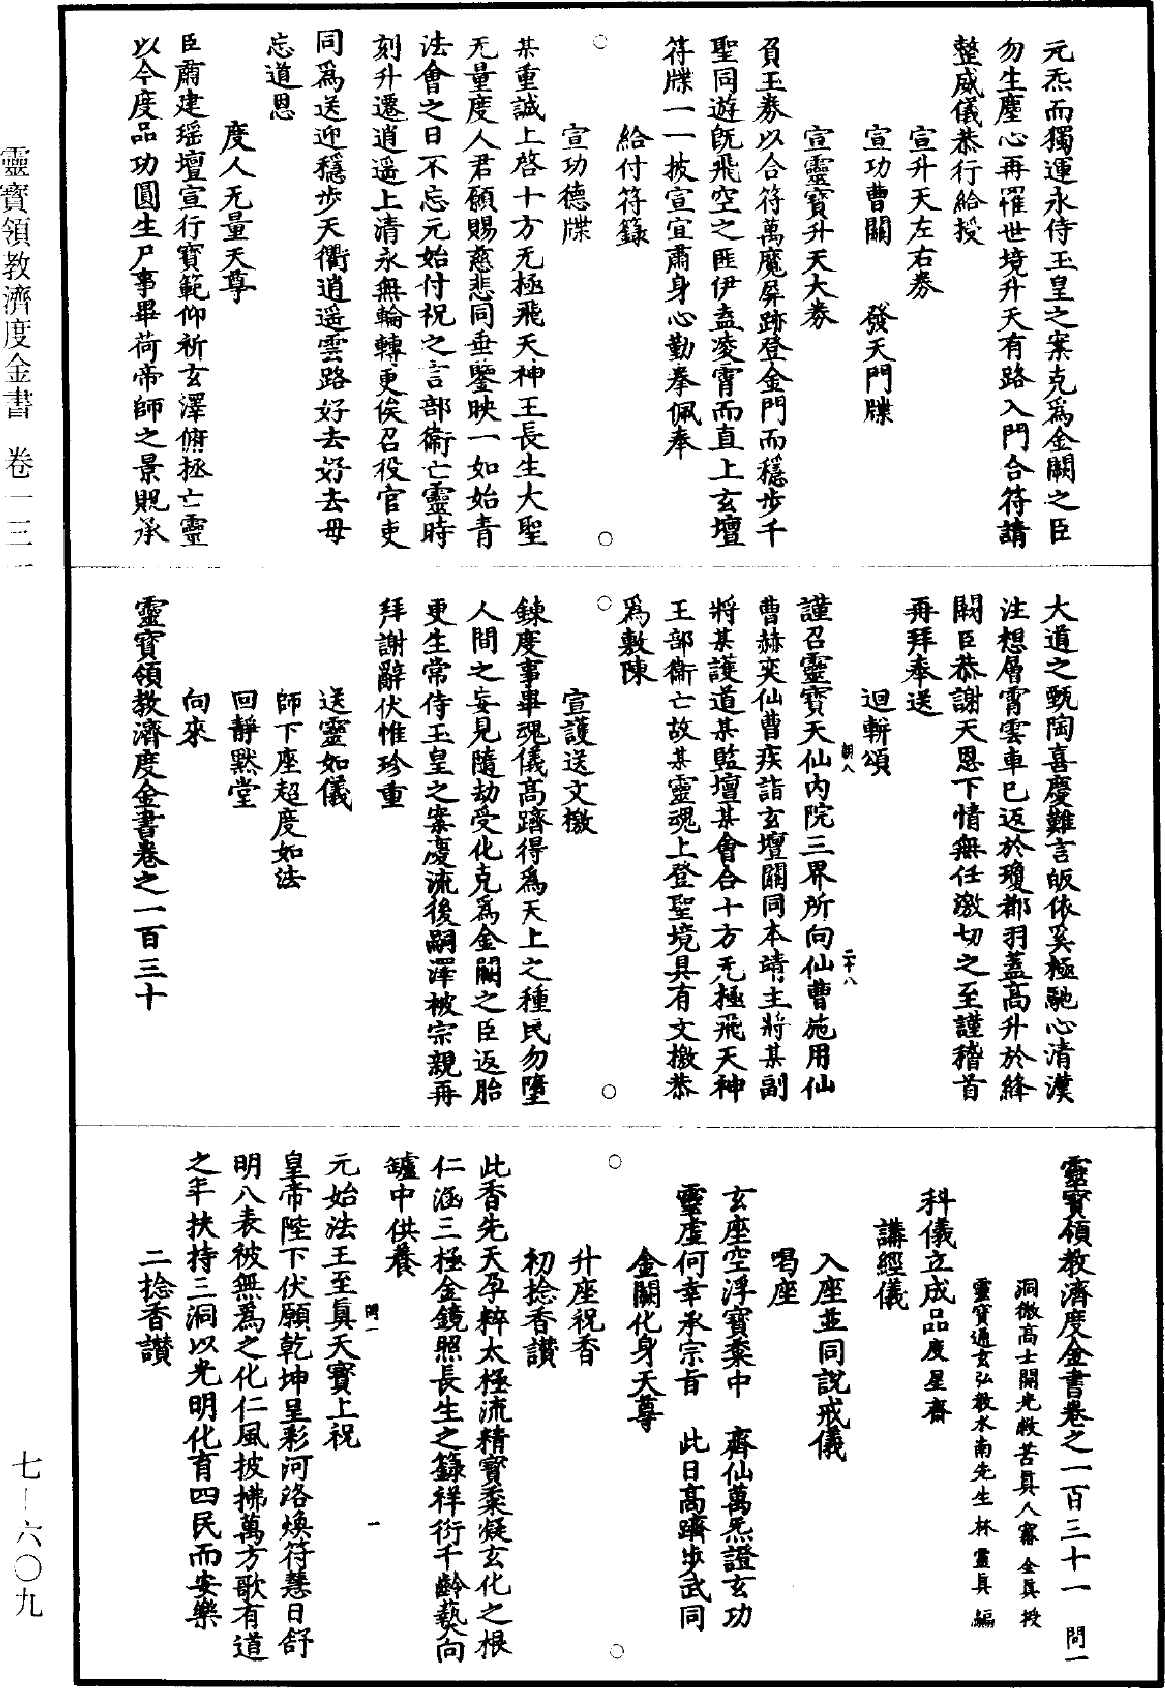 元炁而獨運永侍玉皇之案克爲金闕之臣
勿生塵心再罹世境升天有路入門合符請
整威儀恭行給授
宣升天左右券
宣功曹關　發天門牒
宣靈寶升天大券
負玉券以合符萬魔屏跡登金門而穩步千
聖同遊旣飛空之匪伊盍凌霄而直上玄壇
符牒一一披宣宜肅身心勤拳佩奉
給付符籙
○　○
宣功德牒
某重誠上啓十方无極飛天神王長生大聖
无量度人君願賜慈悲同垂鑒映一如始青
法會之日不忘元始付祝之言部衛亡靈時
刻升遷逍遥上清永無輪轉更俟召役官吏
同爲送迎穩步天衢逍遥雲路好去好去毋
忘道恩
度人无量天尊
臣肅建瑶壇宣行寶範仰祈玄澤俯拯亡靈
以今度品功圓生尸事畢荷帝師之景貺承
大道之甄陶喜慶難言皈依奚極馳心清漢
注想層霄雲車已返於瓊都羽蓋高升於絳
闕臣恭謝天恩下情無任激切之至謹稽首
再拜奉送
迴軿頌
謹召靈寶天仙内院三界所向仙曹施用仙
曹赫奕仙曹疾詣玄壇關同本靖主將某副
將某護道某監壇某會合十方无極飛天神
王部衛亡故某靈魂上登聖境具有文檄恭
爲敷陳
○　○
宣護送文檄
鍊度事畢魂儀高躋得爲天上之種民勿墮
人間之妄見隨劫受化克爲金闕之臣返胎
更生常侍玉皇之案慶流後嗣澤被宗親再
拜謝辭伏惟珍重
送靈如儀
師下座超度如法
回靜默堂
向來
靈寶領教濟度金書卷之一百三十
靈寶領教濟度金書卷之一百三十一　問一
洞微高士開光救苦眞人甯全眞授
靈寶通玄弘教水南先生林靈眞編
科儀立成品度星齋
講經儀
入座並同說戒儀
唱座
玄座空浮寶黍中　齊仙萬炁證玄功
靈虛何幸承宗旨　此日高躋步武同
金闕化身天尊
○　○
升座祝香
初捻香讚
此香先天孕粹太極流精寶黍凝玄化之根
仁涵三極金鏡照長生之籙祥衍千齡爇向
鑪中供養
元始法王至眞天寶上祝
皇帝陛下伏願乾坤呈彩河洛煥符慧日舒
明八表被無爲之化仁風披拂萬方歌有道
之年扶持三洞以光明化育四民而安樂
二捻香讚
靈寶領教濟度金書　卷一三一
七-六〇九